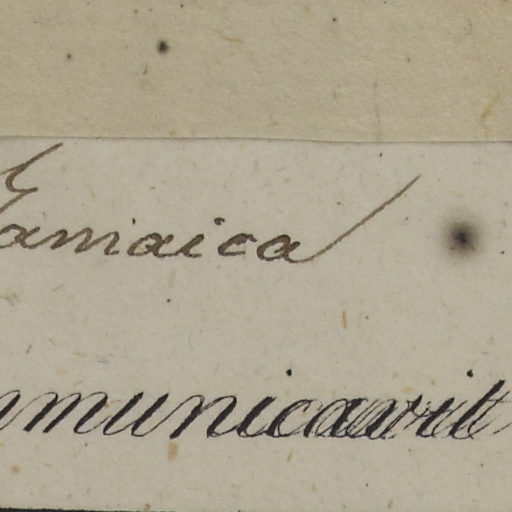 Jamaica
mmunicavit